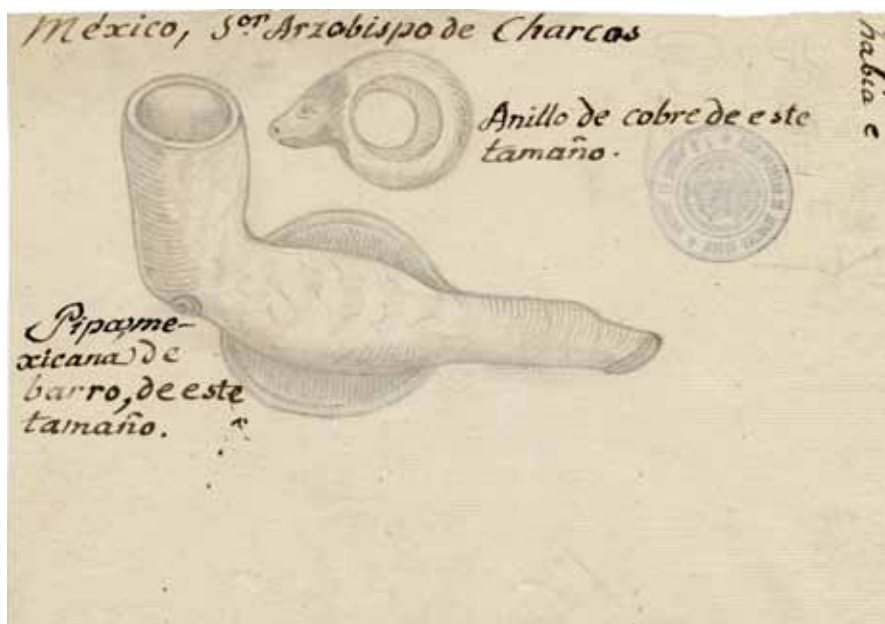 México, S.or Arzobispo de Charcas
Anillo de cobre de este
tamaño.
Pipa, me-
xicana de
barro, de este
tamaño.
había e